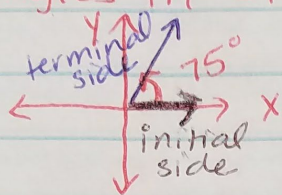 y
terminal
side
75°
x
initial
side